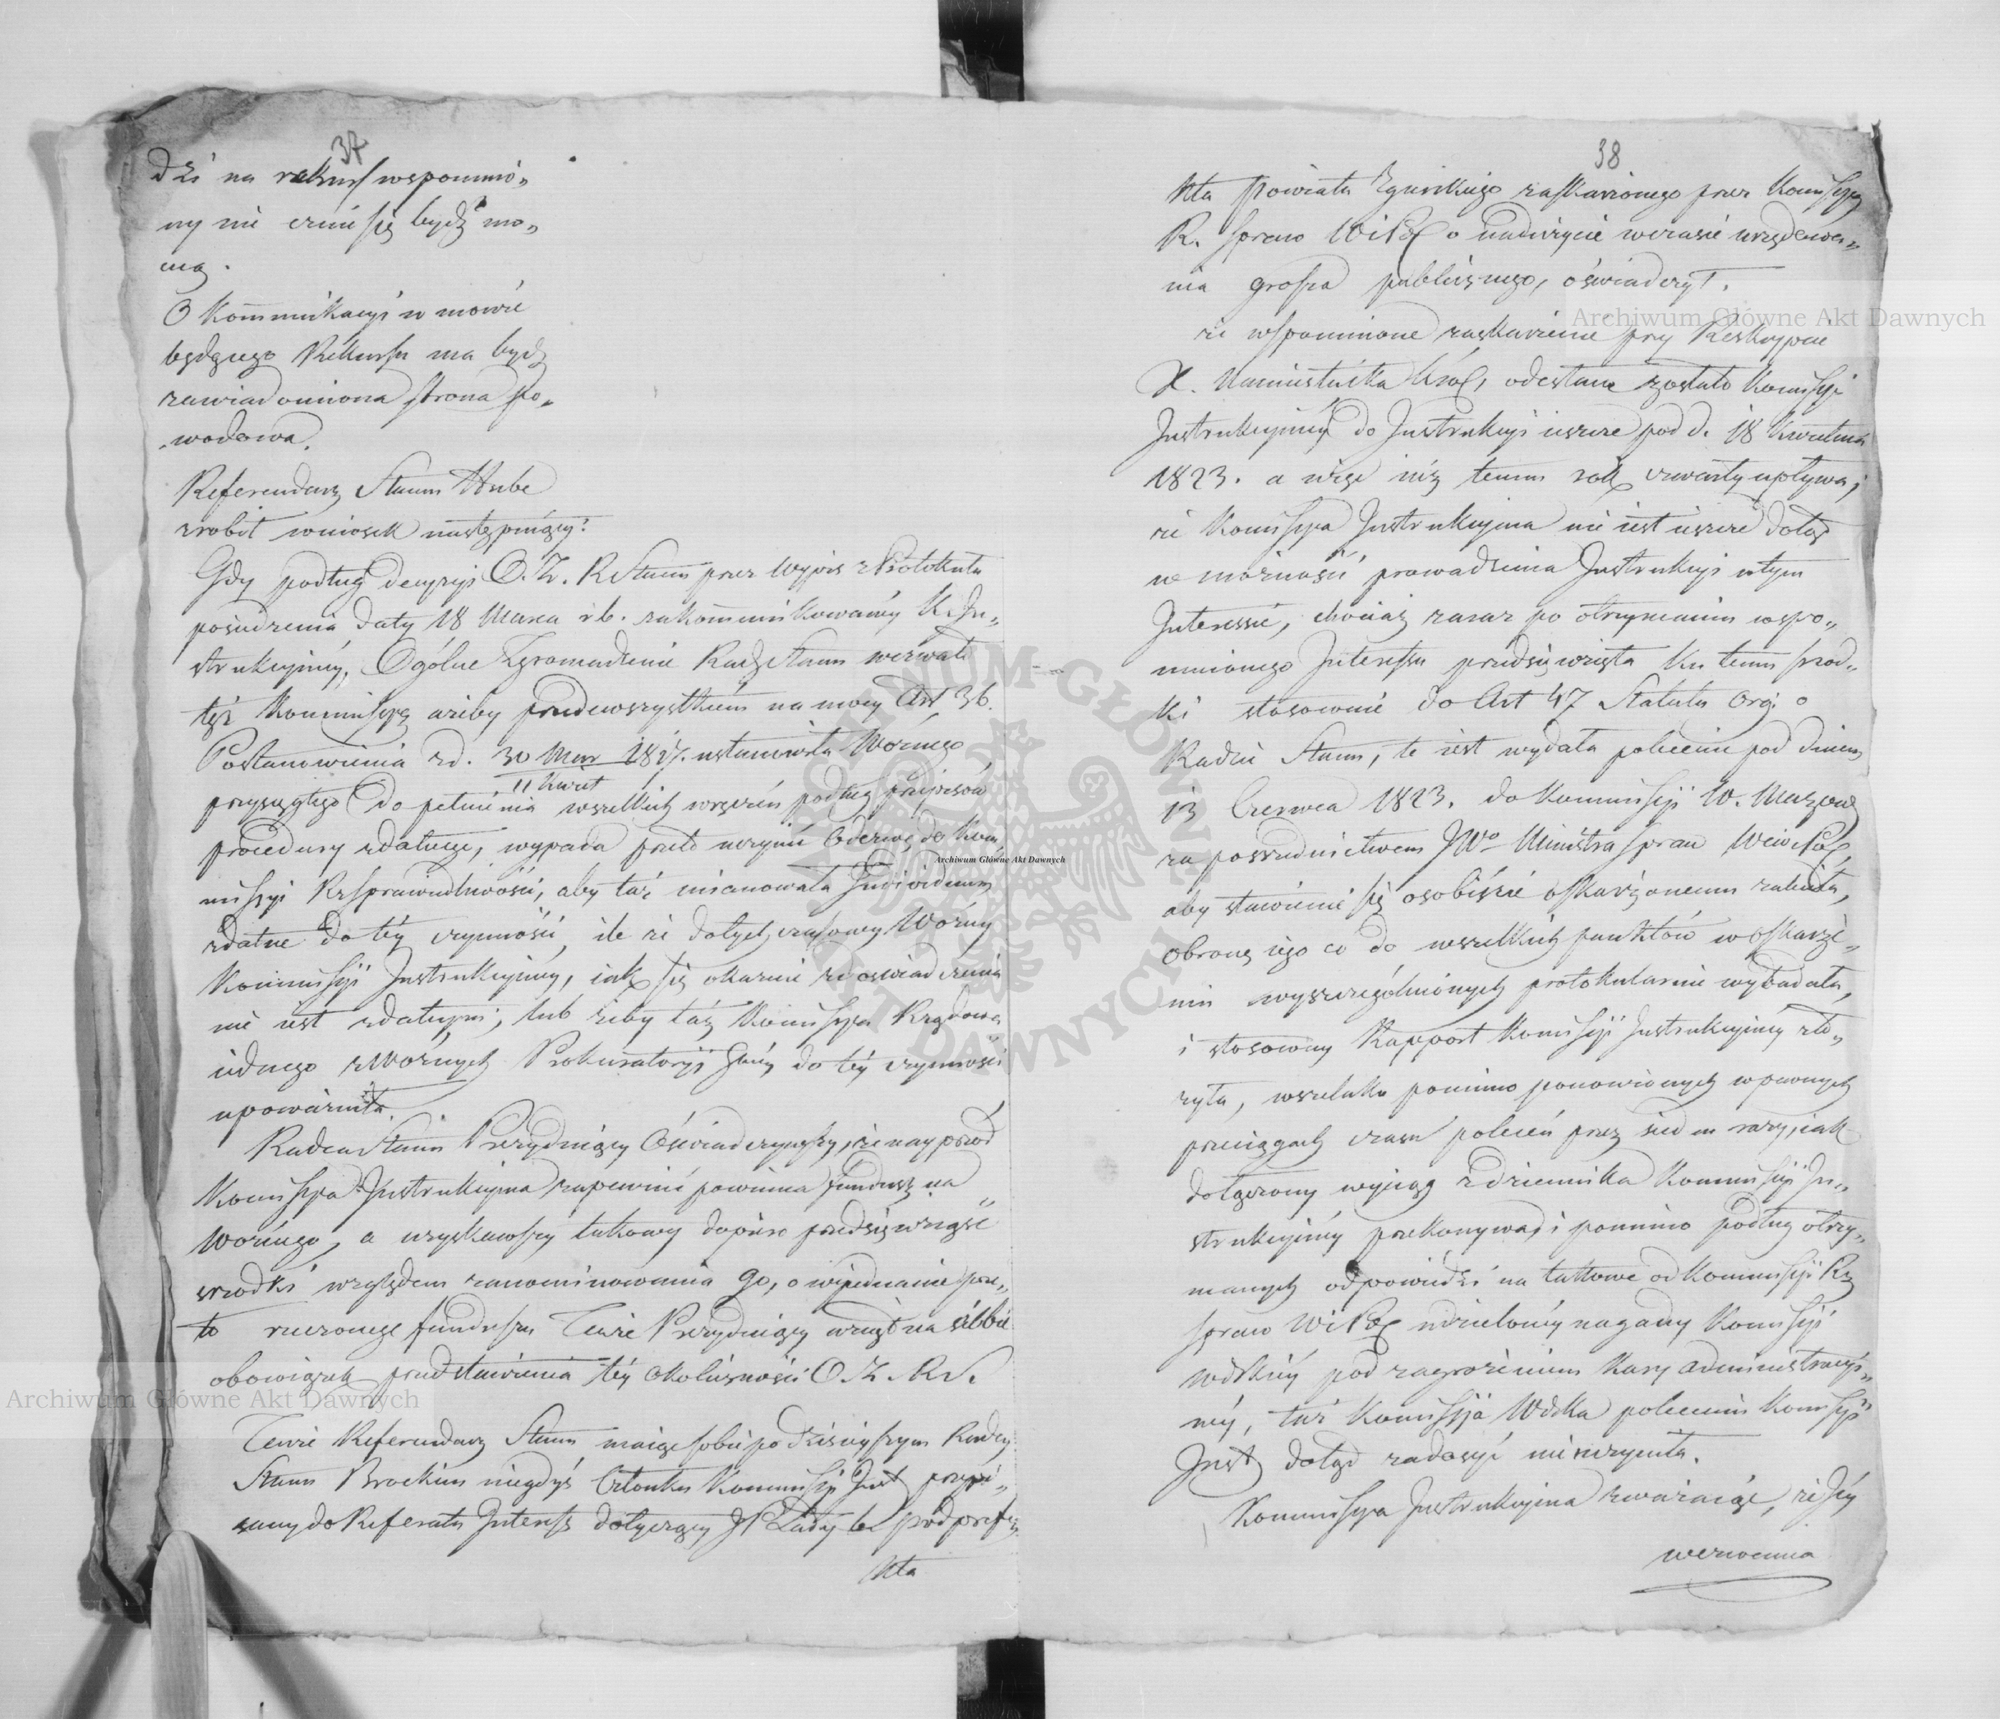 37
dzi na rekurs wspomnio„
ny nie czuie się bydź mo„
cną.
O kommunikacyi w mowie
będącego Rekursu ma bydź
zawiadomiona strona po„
wodowa.
Referendarz Stanu Hube
zrobił wniosek następuiący:
Gdy podług decyzyi O. Z. R. Stanu przez wypis z Protokułu
posiedzenia daty 18 Marca r. b. zakommunikowaney K. In„
strukcyiney, Ogólne Zgromadzenie Rady Stanu wezwało
też Kommissyę ażeby przedewszystkiem na mocy Art 36.
Postanowienia z d. 30 Mar 1817. ustanowiła Woźnego
11 Kwiet
przysięgłego do pełnienia wszelkich wręczeń podług przepisów
procedury zdatnego, wypada przeto uczynić Odezwę do Kom„
missyi Rz. Sprawiedliwości, aby taż mianowała Individuum
zdatne do tey czynności, ile że dotychczasowy Woźny
Kommissyi Instrukcyiney, iak się okazuie z oświadczenia
nie iest zdatnym, lub żeby taż Kommissya Rządowa
iednego z Woźnych Prokuratoryi Gney do tey czynności
upoważniła.
Radca Stanu Prezyduiący Oświadczywszy, że naypród
Kommissya Instrukcyina zapewnić powinna fundusz na
Woźnego, a uzyskawszy takowy dopiero przedsięwziąść
srodki względem zanominowania go, o wyiednanie prze„
to rzeczonego funduszu Tenże Prezyduiący wziął na siebie
obowiązek przedstawienia tey okoliczności O. Z. R. S.
Tenże Referendarz Stanu maiąc sobie po dzisieyszym Radcy
Stanu Brockim niegdyś Członku Kommissyi Inst przypi„
sany do Referatu Interess dotyczący JP. Łady b. podprefe„
kta
38
kta Powiatu Zgierskiego zaskarżonego przez Kommissyą
R. Spraw W i Pol o nadużycie w czasie urzędowa„
nia grosza publicznego, oświadczył.
że wspomnione zaskarżenie przy Reskrypcie
X. Namiestnika Król, odesłane zostało Kommissyi
Instrukcyiney do Instrukcyi ieszcze pod d. 18 Kwietnia
1823. a więc iuż temu rok czwarty upływa,
że Kommissya Instrukcyina nie iest ieszcze dotąd
w możności prowadzenia Instrukcyi w tym
Interessie, chociaż zaraz po otrzymaniu wspo„
mnionego Interessu przedsięwzięła ku temu srod„
ki stosownie do Art 47 Statutu Org: o
Radzie Stanu, to iest wydała polecenie pod dniem
13 Czerwca 1823. do Kommissyi W. Mazow
za posrednictwem JWo Ministra Spraw Wew i Pol,
aby stawienie się osobiście oskarżonemu zaleciła,
obronę iego co do wszelkich punktów w oskarże„
niu wyszczególnionych protokularnie wybadała,
i stosowny Rapport Kommissyi Instrukcyiney zło„
żyła, wszelako pomimo ponowionych w pewnych
przeciągach czasu poleceń przez siedm razy, iak
dołączony wyciąg z dziennika Kommissyi In„
strukcyiney przekonywa, i pomimo podług otrzy„
manych odpowiedzi na takowe od Kommissyi Rz
Spraw W i Pol udzieloney nagany Kommissyi
Wdzkiey pod zagrożeniem kary administracyi„
ney, taż Kommissya Wdzka poleceniu Kommissyi
Inst dotąd zadosyć nieuczyniła.
Kommissya Instrukcyina zważaiąc, że Jey
wezwania
Archiwum Główne Akt Dawnych
Archiwum Główne Akt Dawnych
Archiwum Główne Akt Dawnych
ARCHIWUM GŁÓWNE AKT DAWNYCH